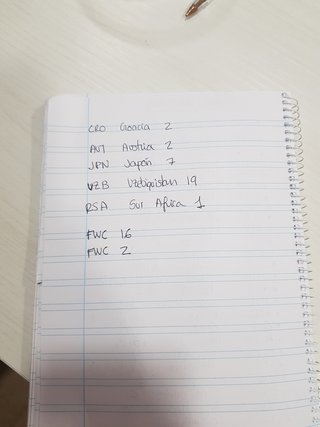 CRO Croacia 2
AUT Austria 2
JPN Japón 7
UZB Uzbequistan 19
RSA Sur Africa 1
FWC 16
FWC 2